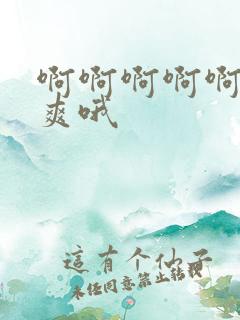 啊啊啊啊啊
爽哦
這有个仙子
未经同意禁止转载